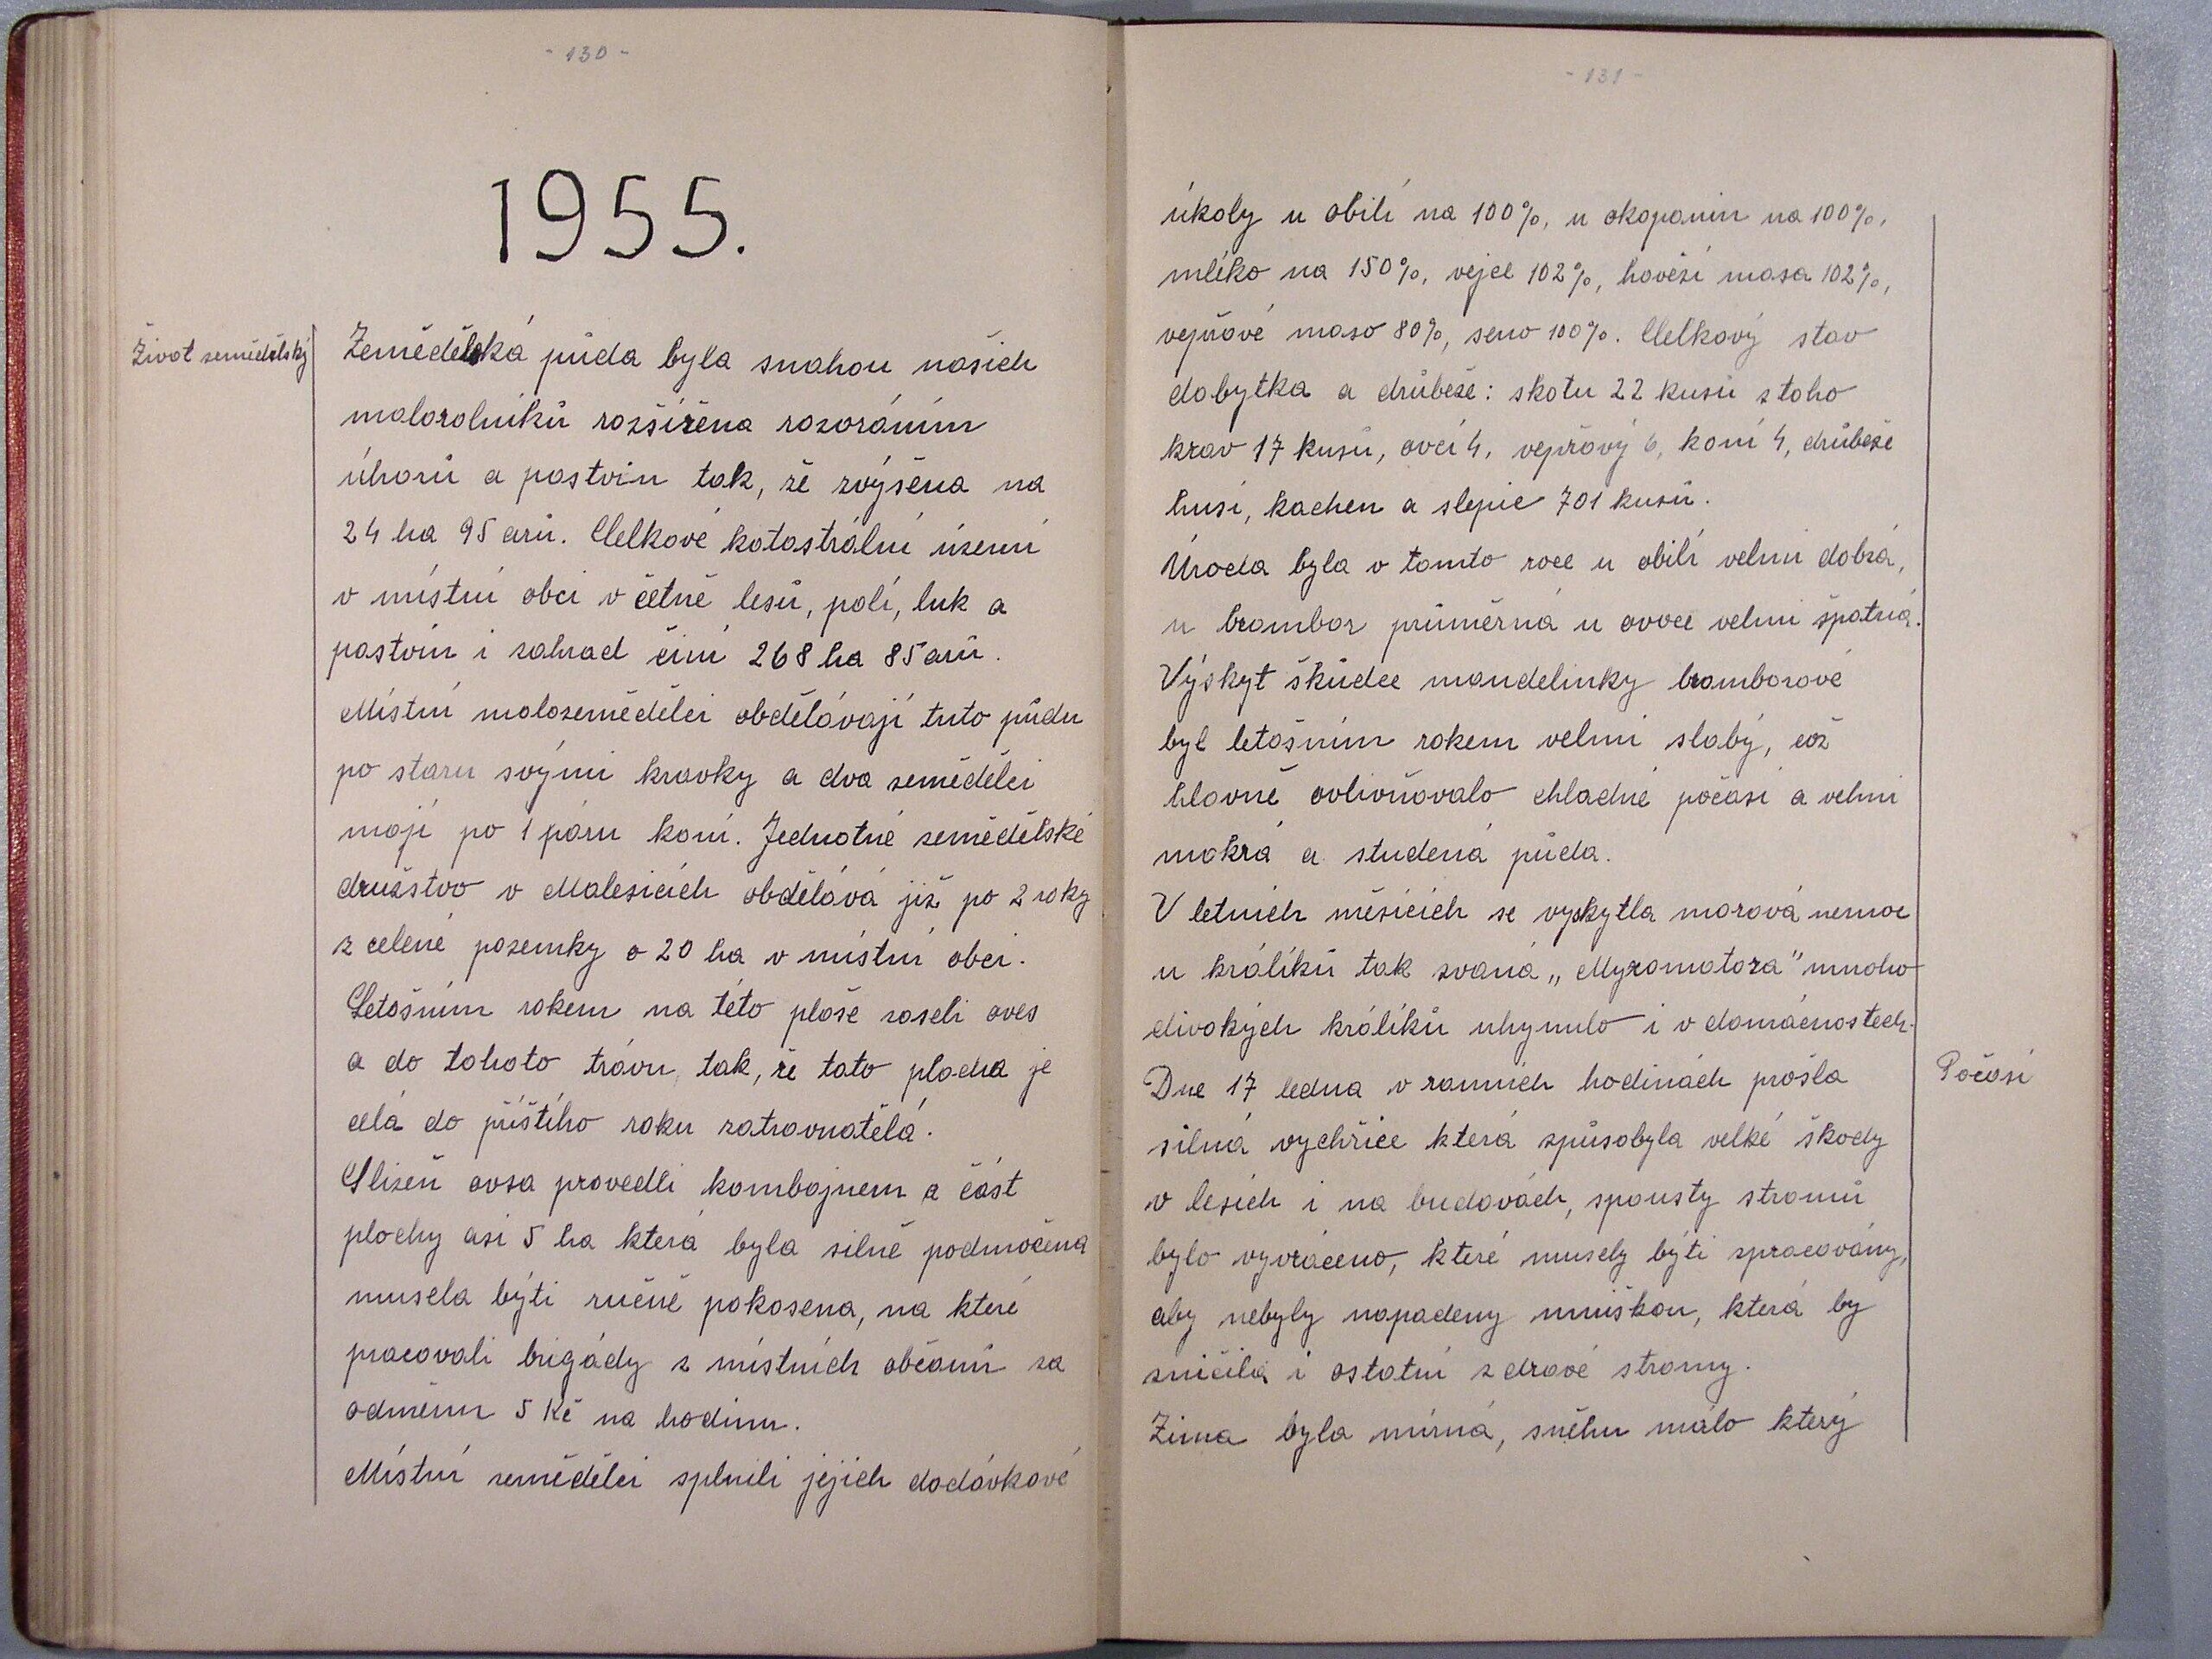 - 130 -
1955.
Život zemědělský
Zemědělská půda byla snahou našich
malorolníků rozšířena rozoráním
úhorů a pastvin tak, že zvýšena na
24 ha 95 arů. Celkové katastrální území
v místní obci v četně lesů, polí, luk a
pastvin i zahrad činí 268 ha 85 arů.
Místní malozemědělci obdělávají tuto půdu
po staru svými kravky a dva zemědělci
mají po 1 páru koní. Jednotné zemědělské
družstvo v Malesicích obdělává již po 2 roky
z celené pozemky o 20 ha v místní obci.
Letošním rokem na této ploše zaseli oves
a do tohoto trávu, tak, že tato plocha je
celá do příštího roku zatravnatělá.
Sklizeň ovsa provedli kombajnem a část
plochy asi 5 ha která byla silně podmočena
musela býti ručně pokosena, na které
pracovali brigády z místních občanů za
odměnu 5 Kč na hodinu.
Místní zemědělci splnili jejich dodávkové
- 131 -
úkoly u obilí na 100%, u okopanin na 100%,
mlíko na 150%, vejce 102%, hovězí masa 102%,
vepřové maso 80%, seno 100%. Celkový stav
dobytka a drůbeže: skotu 22 kusů z toho
krav 17 kusů, ovcí 4, vepřový 6, koní 4, drůbeže
husí, kachen a slepic 701 kusů.
Úroda byla v tomto roce u obilí velmi dobrá,
u brambor průměrná u ovoce velmi špatná.
Výskyt škůdce mandelinky bramborové
byl letošním rokem velmi slabý, což
hlavně ovlivňovalo chladné počasí a velmi
mokrá a studená půda.
V letních měsících se vyskytla morová nemoc
u králíků tak zvaná „Myxomatoza" mnoho
divokých králíků uhynulo i v domácnostech.
Počasí
Dne 17 ledna v ranních hodinách prošla
silná vychřice která způsobyla velké škody
v lesích i na budovách, spousty stromů
bylo vyvráceno, které musely býti zpracovány,
aby nebyly napadeny mniškou, která by
zničila i ostatní zdravé stromy.
Zima byla mírná, sněhu málo který